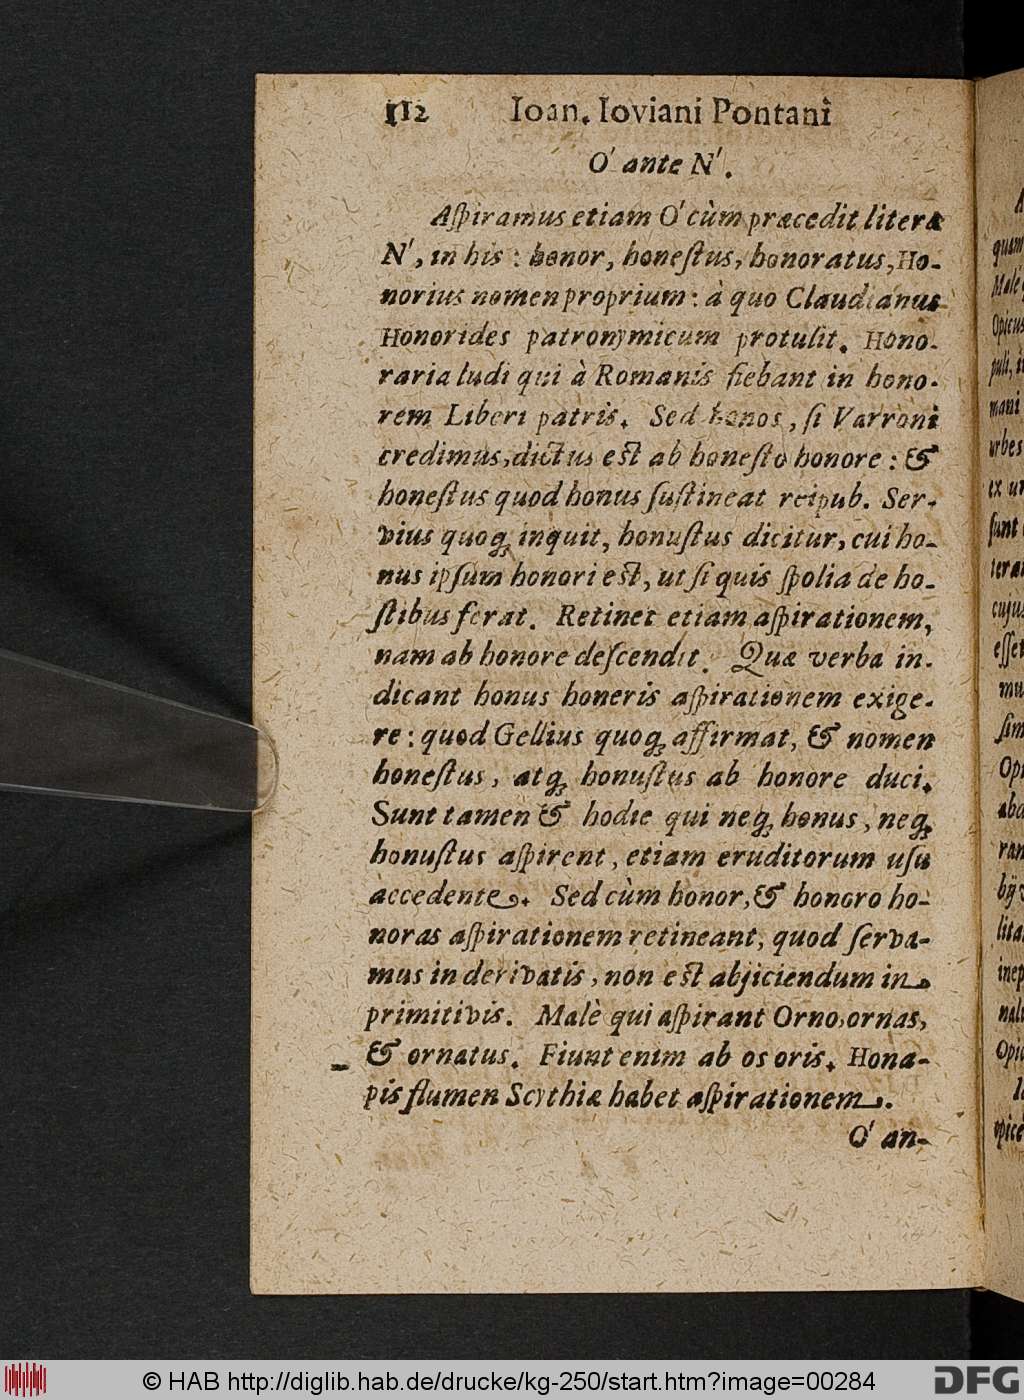 112 Ioan. Ioviani Pontani
O' ante N'.
Aſpiramus etiam O' cùm præcedit litera
N', in his : honor, honeſtus, honoratus, Ho-
norius nomen proprium : à quo Claudianus
Honorides patronymicum protulit. Hono-
raria ludi qui à Romanis fiebant in hono-
rem Liberi patris. Sed honos, ſi Varroni
credimus, dictus eſt ab honeſto honore : &
honeſtus quod honus ſuſtineat reipub. Ser-
vius quoq; inquit, honuſtus dicitur, cui ho-
nus ipſum honori eſt, ut ſi quis ſpolia de ho-
ſtibus ferat. Retinet etiam aſpirationem,
nam ab honore deſcendit. Quæ verba in-
dicant honus honeris aſpirationem exige-
re : quod Gellius quoq; affirmat, & nomen
honeſtus, atq; honuſtus ab honore duci.
Sunt tamen & hodie qui neq; honus, neq;
honuſtus aſpirent, etiam eruditorum uſu
accedente. Sed cùm honor, & honoro ho-
noras aſpirationem retineant, quod ſerva-
mus in derivatis, non eſt abjiciendum in
primitivis. Malè qui aſpirant Orno, ornas,
& ornatus. Fiunt enim ab os oris. Hona-
pis flumen Scythiæ habet aſpirationem.
O' an-
© HAB http://diglib.hab.de/drucke/kg-250/start.htm?image=00284
DFG